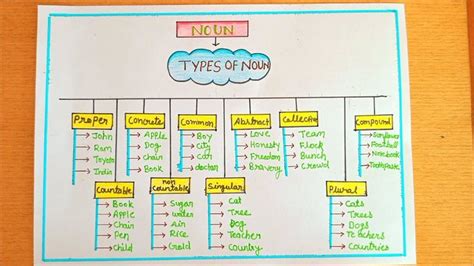 NOUN
TYPES OF NOUN
Proper
John
Ram
Toyota
India
Concrete
Apple
Dog
Chair
Book
Common
Boy
City
Car
doctor
Abstract
Love
Honesty
Freedom
Bravery
Collective
Team
Flock
Bunch
Crowd
Compound
Sunflower
Football
Notebook
Toothpaste
Countable
Book
Apple
Chair
Pen
Child
non
Countable
Sugar
water
Air
Rice
Gold
Singular
Cat
Tree
Dog
Teacher
Country
Plural
Cats
Trees
Dogs
Teachers
Countries